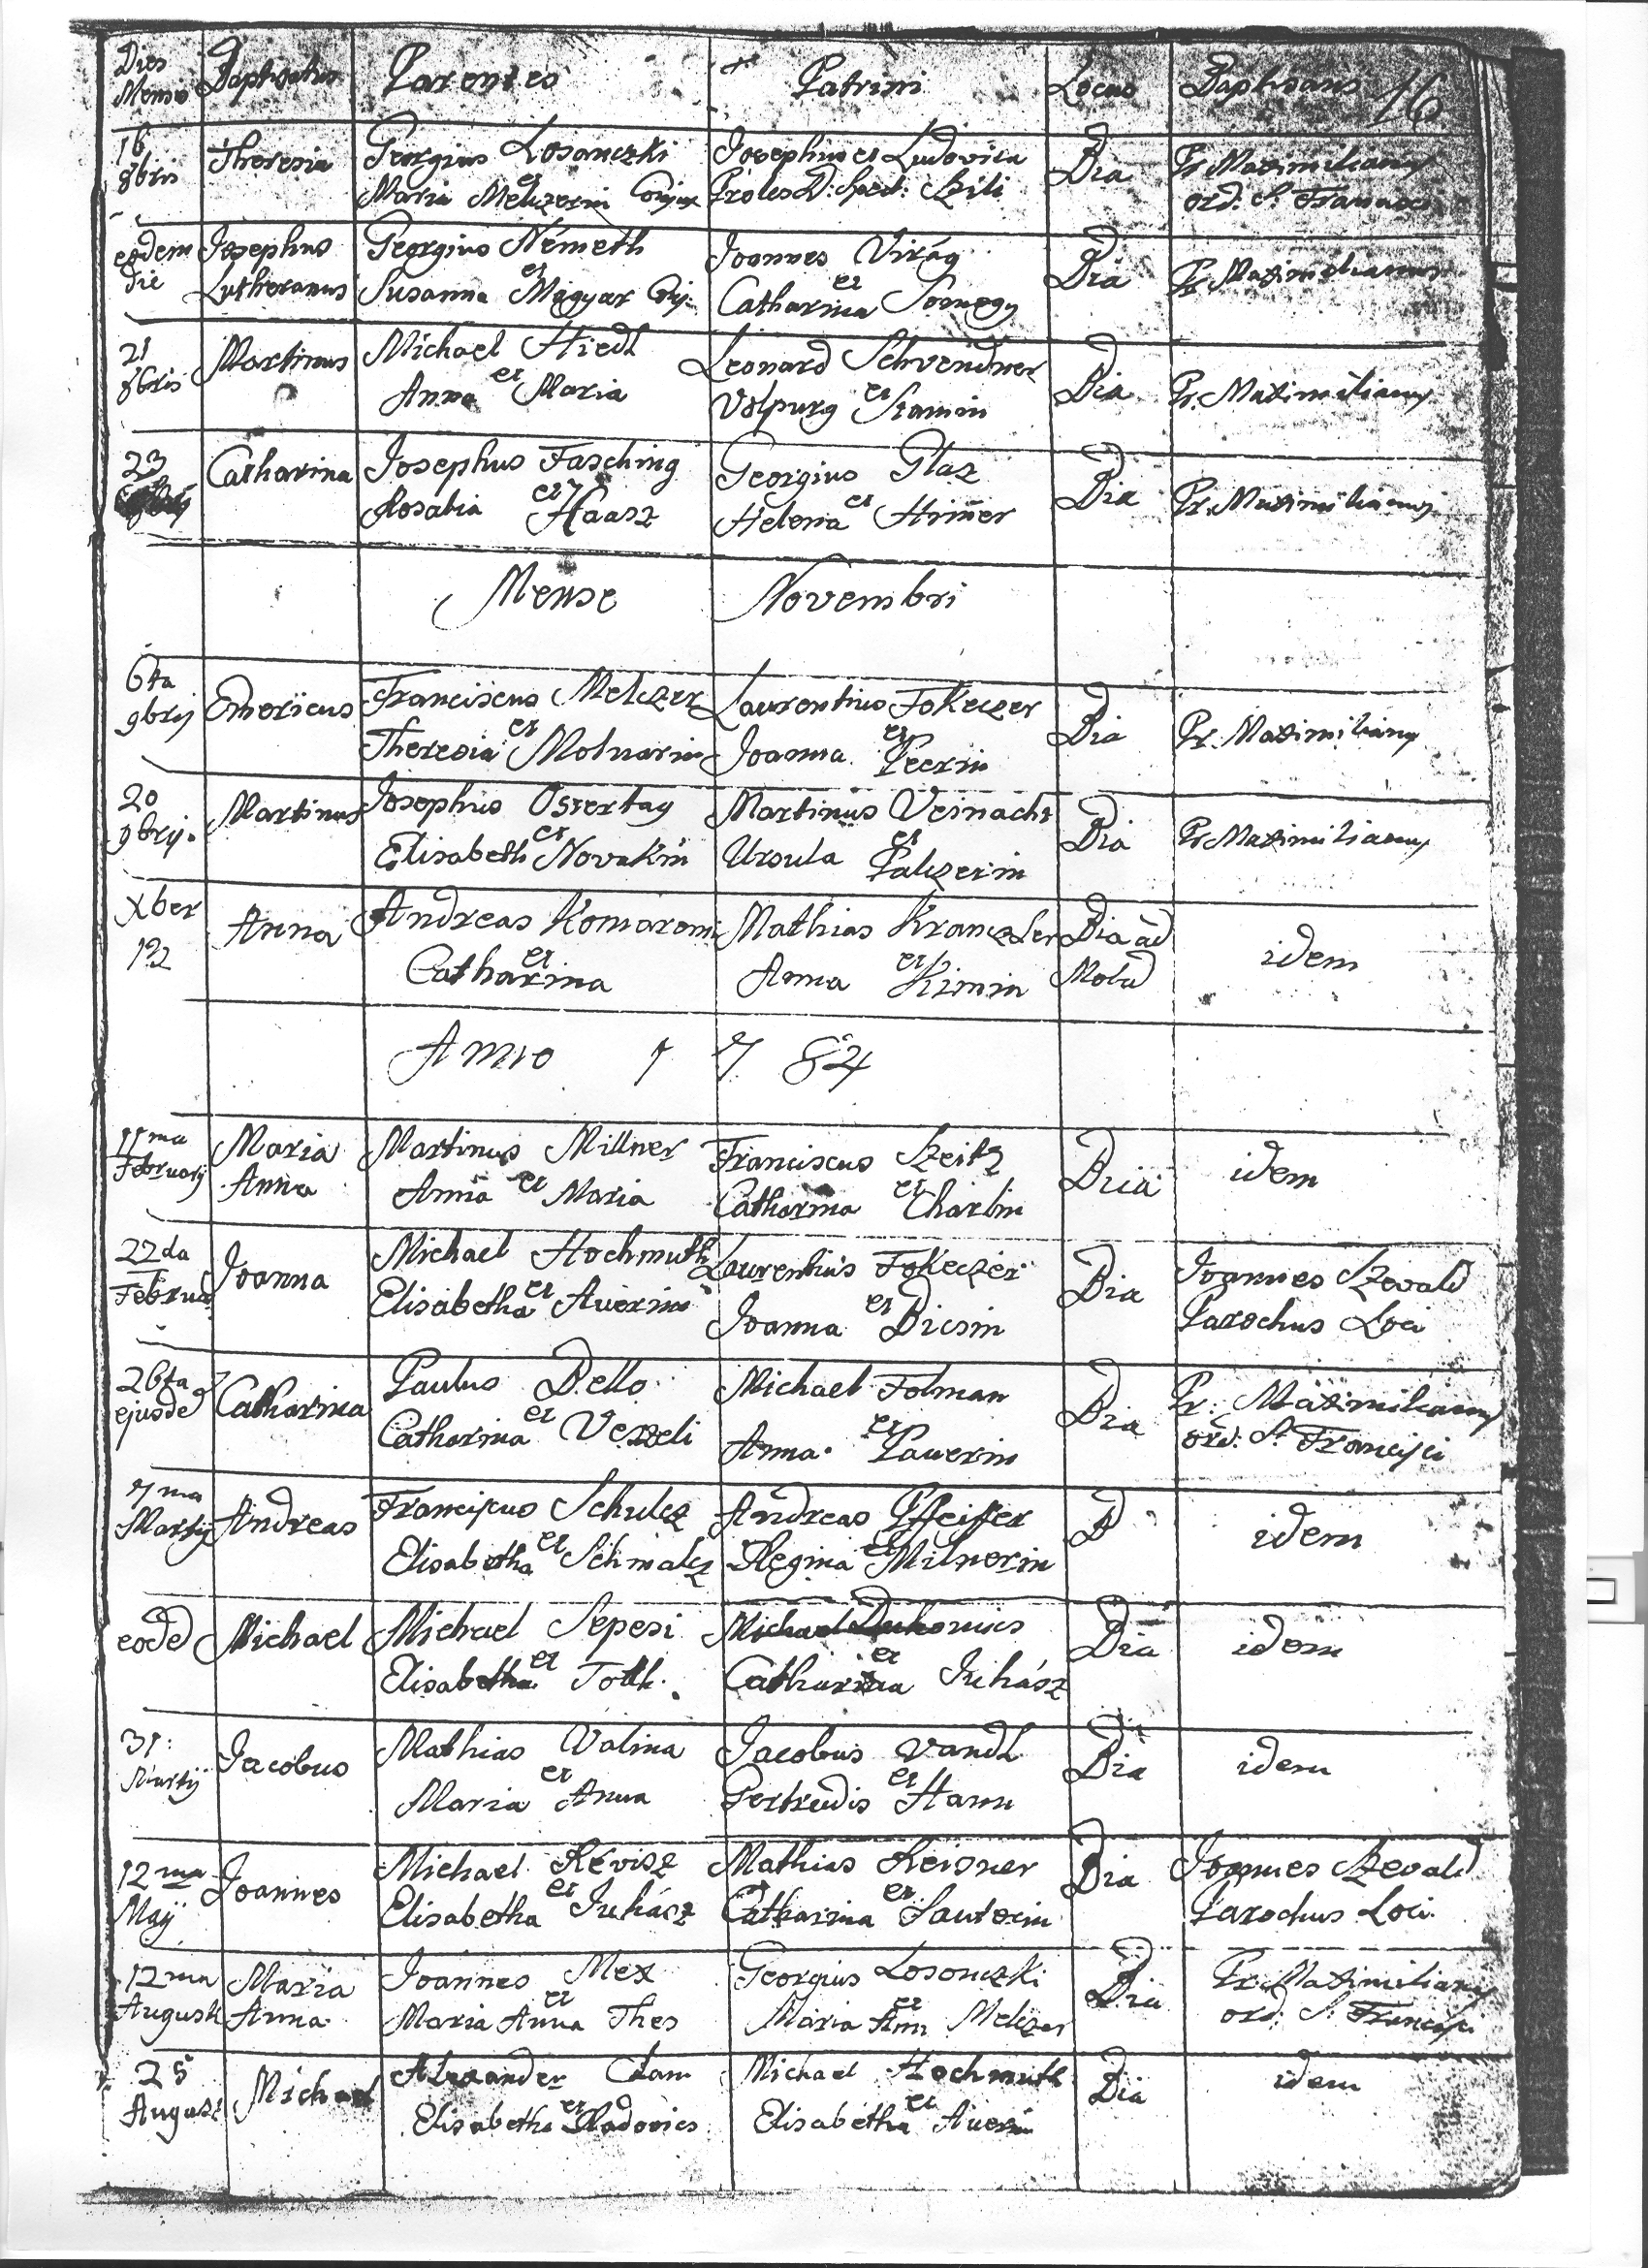 Dies Mensis Baptisatus Parentes Patrini Locus Baptisans 16
16 8bris Theresia Georgius Losonczki et Maria Melczerin Conjux Josephus et Ludovica Proles D: Spect: Szili Dia Pr Maximilianus ord: S. Francisci
eodem die Josephus Lutheranus Georgius Németh et Susanna Magyar Conj: Joannes Virág et Catharina Somogy Dia Pr Maximilianus
21 8bris Martinus Michael Hiedl et Anna Maria Leonard Schvendner et Volpurg Stamin Dia Pr. Maximilianus
23 Catharina Josephus Fasching et Rosalia Haasz Georgius Glaz et Helena Hriner Dia Pr. Maximilianus
Mense Novembri
6ta 9brij Emericus Franciscus Melczer et Theresia Molnarin Laurentius Fokeczer et Joanna Peerin Dia Pr. Maximilianus
20 9brij. Martinus Josephus Ostertag et Elisabeth Novakin Martinus Veinacht et Ursula Palczerin Dia Pr Maximilianus
Xber 12 Anna Andreas Komaromi et Catharina Mathias Kranczler et Anna Kirnin Dia ad Mold idem
Anno 1784
11ma Februarij Maria Anna Martinus Millner et Anna Maria Franciscus Szeitz et Catharina Charlin Dia idem
22da Februa Joanna Michael Hochmuth et Elisabetha Auerin Laurentius Fokeczer et Joanna Dicsin Dia Joannes Szevald Parochus Loci
26ta ejusde Catharina Paulus Dello et Catharina Veszeli Michael Folman et Anna Pauerin Dia Pr: Maximilianus ord: S. Francisci
7ma Martij Andreas Franciscus Schulcz et Elisabetha Schmalcz Andreas Pfeiffer et Regina Milnerin D idem
eode Michael Michael Sepesi et Elisabetha Toth. Michael et Catharina Juhász Dia idem
31: Martij Jacobus Mathias Valina et Maria Anna Jacobus Vandl et Gertrudis Hann Dia idem
12ma Maij Joannes Michael Révisz et Elisabetha Juhász Mathias Reisner et Catharina Sauterin Dia Joannes Szevald Parochus Loci
12ma August Maria Anna Joannes Mex et Maria Anna Thes Georgius Losonczki et Maria Ann Melczer Dia Pr. Maximilianus ord: S. Francisci
25 August Michael Alexander Clam et Elisabetha Radovics Michael Hochmuth et Elisabetha Auerin Dia idem